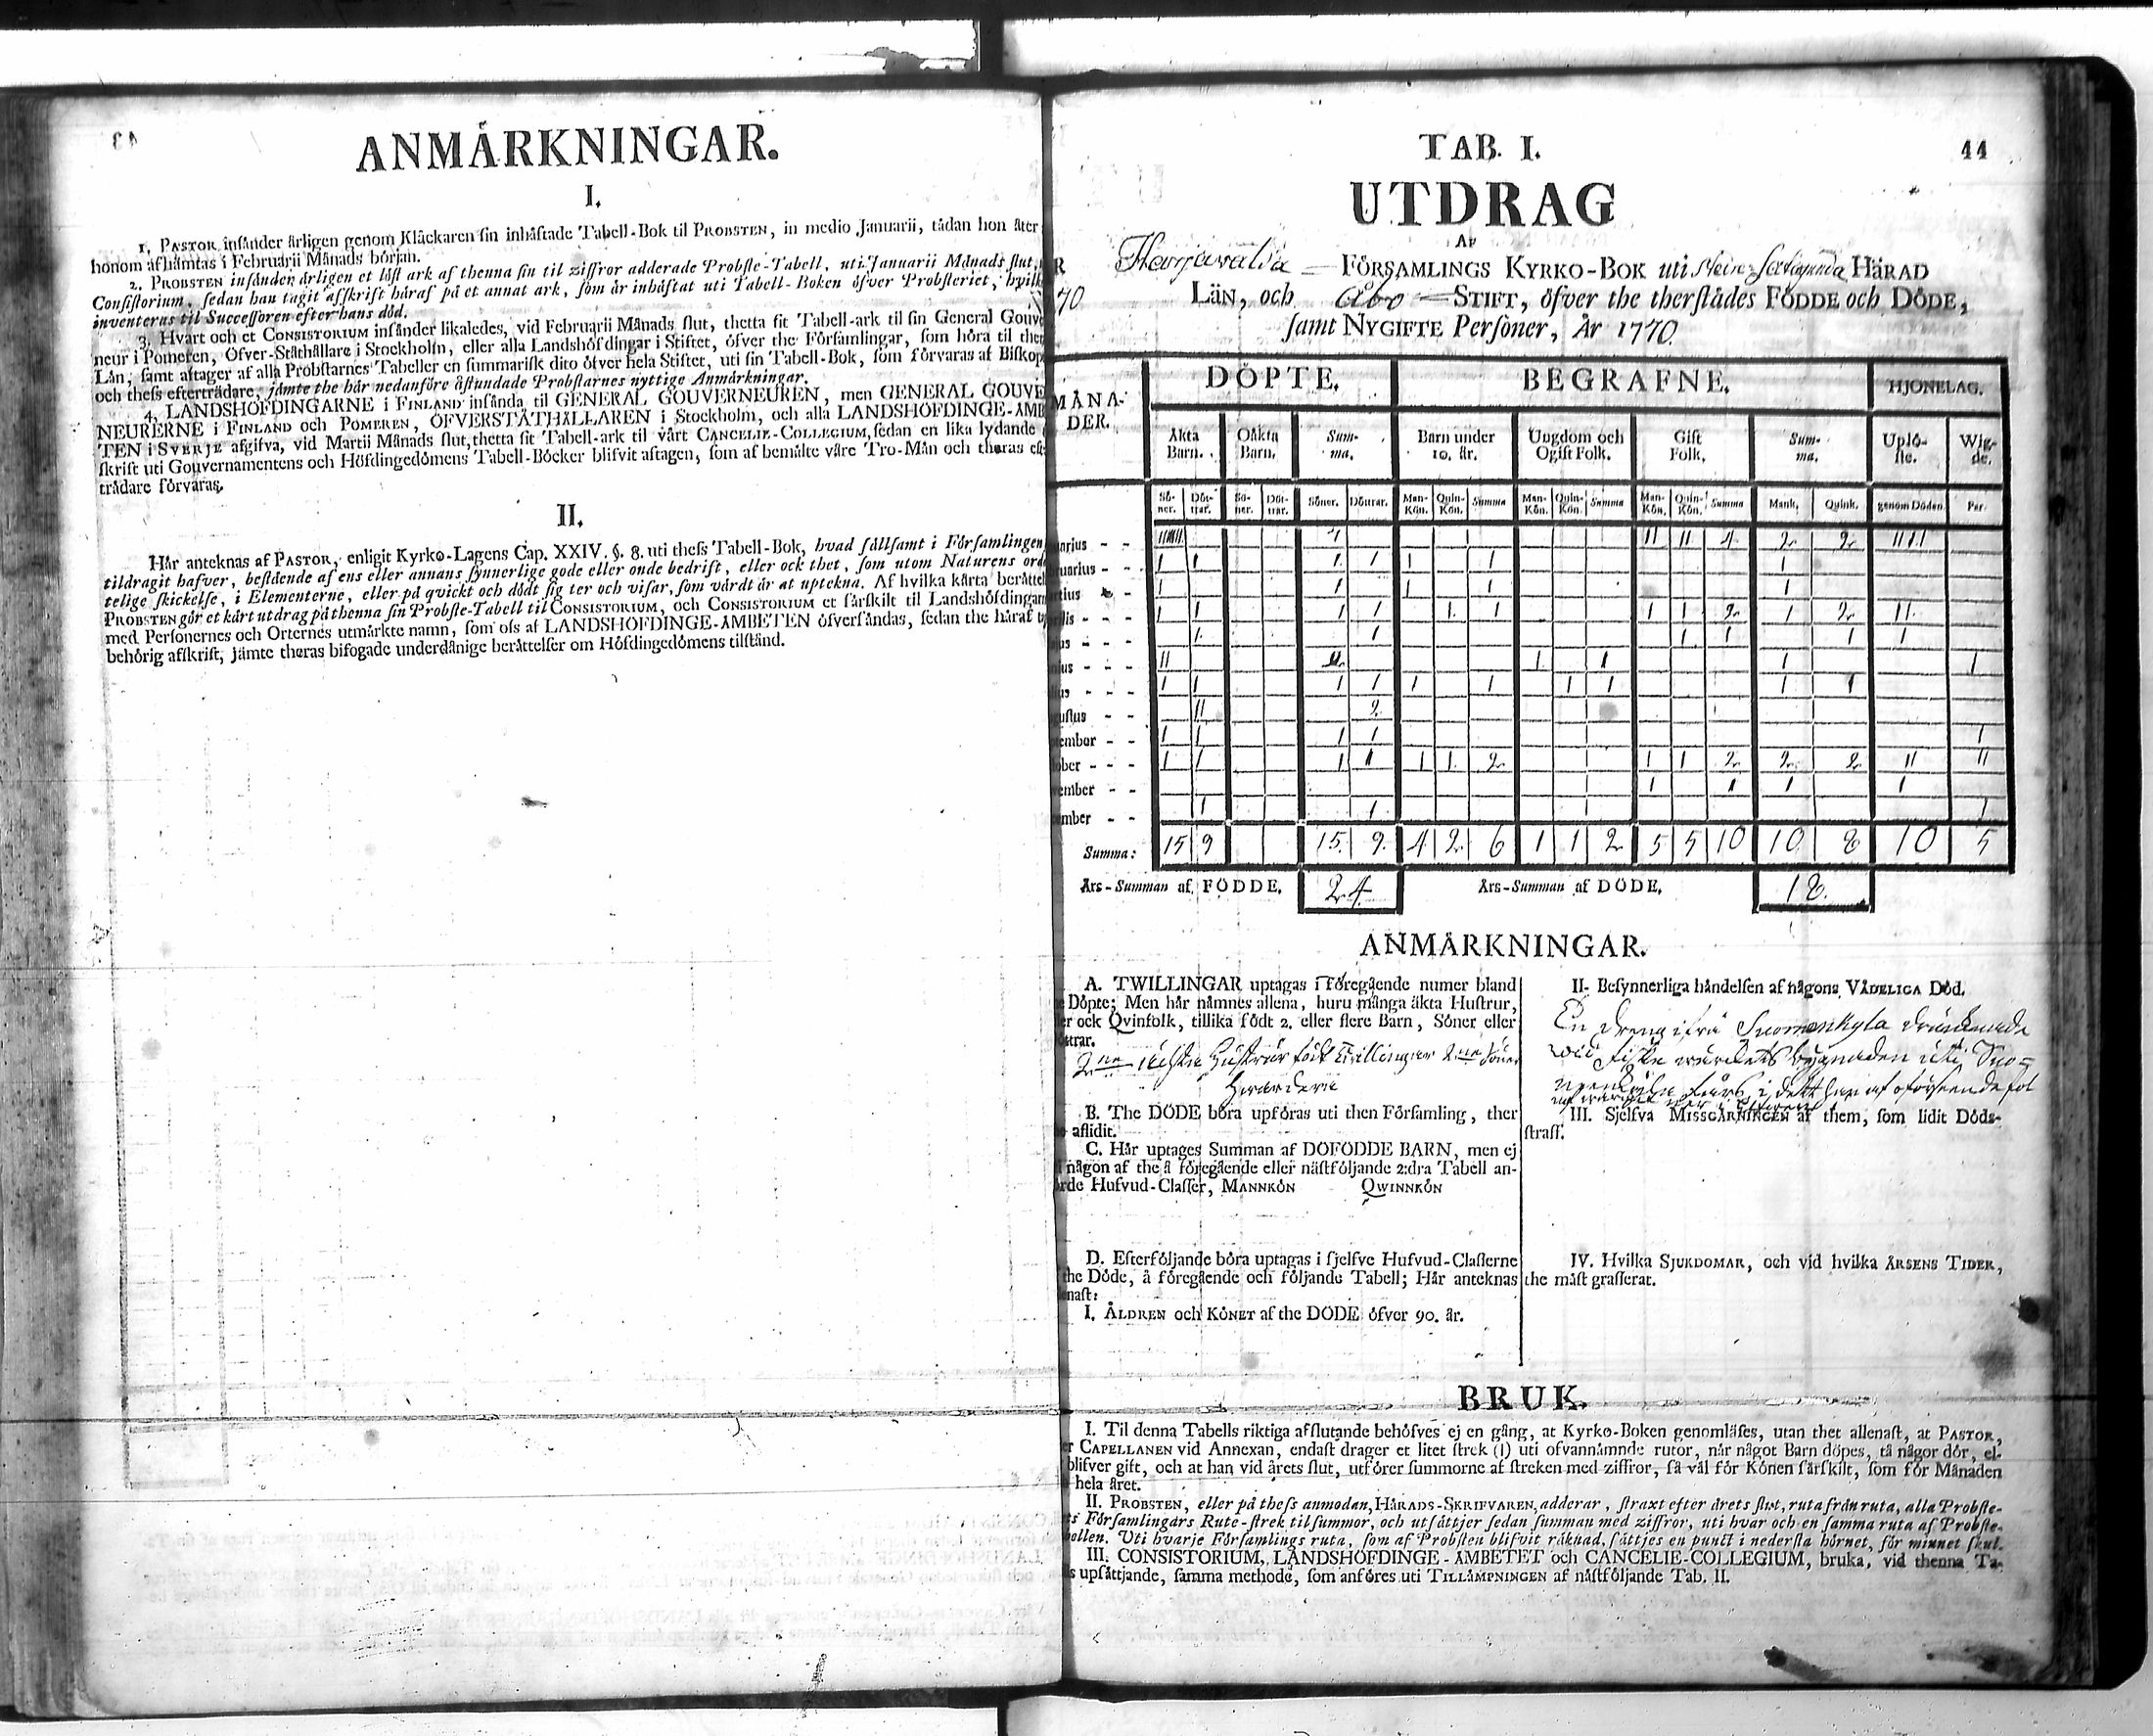 43
ANMÄRKNINGAR.
I.
1. PASTOR insänder årligen genom Klåckaren sin inhäftade Tabell-Bok til PROBSTEN, in medio Januarii, tådan hon åter
honom afhämtas i Februarii Månads början.
2. PROBSTEN insänder årligen et löst ark af thenna sin til ziffror adderade Probste-Tabell, uti Januarii Månads slut,
Consistorium, sedan han tagit afskrift häraf på et annat ark, som är inhäftat uti Tabell-Boken öfver Probsteriet, hvilk
inventeras til Successoren efter hans död.
3. Hvart och et CONSISTORIUM insänder likaledes, vid Februarii Månads slut, thetta sit Tabell-ark til sin General Gouv
neur i Pomeren, Öfver-Ståthållare i Stockholm, eller alla Landshöfdingar i Stiftet, öfver the Församlingar, som höra til ther
Län, samt aftager af alla Probstarnes Tabeller en summarisk dito öfver hela Stiftet, uti sin Tabell-Bok, som förvaras af Biskop
och thess efterträdare, jämte the här nedanföre åstundade Probstarnes nyttige Anmärkningar.
4. LANDSHÖFDINGARNE i FINLAND insända til GENERAL GOUVERNEUREN, men GENERAL GOUVE
NEURERNE i FINLAND och POMEREN, ÖFVERSTÅTHÅLLAREN i Stockholm, och alla LANDSHÖFDINGE-ÄMB
TEN i SVERJE afgifva, vid Martii Månads slut, thetta sit Tabell-ark til vårt CANCELIE-COLLEGIUM, sedan en lika lydande
skrift uti Gouvernamentens och Höfdingedömens Tabell-Böcker blifvit aftagen, som af bemälte våre Tro-Män och theras ef-
trädare förvaras.
II.
Här anteknas af PASTOR, enligit Kyrko-Lagens Cap. XXIV. §. 8. uti thess Tabell-Bok, hvad sällsamt i Församlingen
tildragit hafver, bestående af ens eller annans synnerlige gode eller onde bedrift, eller ock thet, som utom Naturens ord
telige skickelse, i Elementerne, eller på qvickt och dödt sig ter och visar, som värdt är at uptekna. Af hvilka kårta berättel
PROBSTEN gör et kårt utdrag på thenna sin Probste-Tabell til CONSISTORIUM, och CONSISTORIUM et särskilt til Landshöfdingar
med Personernes och Orternes utmärkte namn, som oss af LANDSHÖFDINGE-ÄMBETEN öfversändas, sedan the häraf
behörig afskrift, jämte theras bifogade underdånige berättelser om Höfdingedömens tilstånd.
44
TAB. I.
UTDRAG
AF
Harjavalda FÖRSAMLINGS KYRKO-BOK uti HÄRAD
LÄN, och Åbo STIFT, öfver the therstädes FÖDDE och DÖDE,
samt NYGIFTE Personer, År 1770.
MÅNA-DER. DÖPTE. BEGRAFNE. HJONELAG.
Äkta Barn. Oäkta Barn. Sum-ma. Barn under 10. år. Ungdom och Ogift Folk. Gift Folk. Sum-ma. Uplö-ste. Wig-de.
Sö-ner. Döt-trar. Sö-ner. Döt-trar. Söner. Döttrar. Man-Kön. Quin-Kön. Summa Man-Kön. Quin-Kön. Summa Man-Kön. Quin-Kön. Summa Mank. Quink. genom Döden. Par.
arius - - 
uarius - - 1 1 1 1 1 1 1
rtius - - 1 1 1 1
rilis - - - 1 1 1 1 1 1 1 1 2 1 2 11
jus - - - 1 1 1 1 1 1
nius - - - 11 2 1 1 1 1
lius - - - 1 1 1 1 1 1 1 1 1 1
gustus - - 11 2
tember - - 1 1 1 1 1
ober - - - 1 1 1 1 1 1 2 1 1 2 2 2 11 11
vember - - 1 1 1 1
ember - - 1 1 1
Summa: 15 9 15. 9. 4 2 6 1 1 2 5 5 10 10 8 10 5
Års-Summan af FÖDDE. 24. Års-Summan af DÖDE. 18.
ANMÄRKNINGAR.
A. TWILLINGAR uptagas i Föregående numer bland
e Döpte; Men här nämnes allena, huru många äkta Hustrur,
er ock Qvinfolk, tillika födt 2. eller flere Barn, Söner eller
öttrar.
2ne Hustrur födt tvillingar 2ne Söner
hvardera
B. The DÖDE böra upföras uti then Församling, ther
aflidit.
C. Här uptages Summan af DÖFÖDDE BARN, men ej
någon af the å föregående eller nästföljande 2:dra Tabell an-
rde Hufvud-Classer, MANNKÖN QWINNKÖN
D. Efterföljande böra uptagas i sjelfve Hufvud-Classerne
the Döde, å föregående och följande Tabell; Här anteknas
enast:
I. ÅLDREN och KÖNET af the DÖDE öfver 90. år.
II. Besynnerliga händelsen af någons VÅDELIGA Död.
En dreng ifrå Suomenkyla drunknade
wid fiske byggnaden uti Suo-
III. Sjelfva MISSGÄRNINGEN af them, som lidit Döds-
straff.
IV. Hvilka SJUKDOMAR, och vid hvilka ÅRSENS TIDER,
the mäst grasserat.
BRUK.
I. Til denna Tabells riktiga afslutande behöfves ej en gång, at Kyrko-Boken genomläses, utan thet allenast, at PASTOR,
er CAPELLANEN vid Annexan, endast drager et litet strek (I) uti ofvannämnde rutor, når något Barn döpes, tå någor dör, el-
blifver gift, och at han vid årets slut, utförer summorne af streken med ziffror, så väl för Könen särskilt, som för Månaden
hela året.
II. PROBSTEN, eller på thess anmodan, HÄRADS-SKRIFVAREN, adderar, straxt efter årets slut, ruta från ruta, alla Probste-
ts Församlingars Rute-strek til summor, och utsättjer sedan summan med ziffror, uti hvar och en samma ruta af Probste-
bellen. Uti hvarje Församlings ruta, som af Probsten blifvit räknad, sättjes en punct i nedersta hörnet, för minnet skul.
III. CONSISTORIUM, LANDSHÖFDINGE-ÄMBETET och CANCELIE-COLLEGIUM, bruka, vid thenna Ta-
ls upsättjande, samma methode, som anföres uti TILLÄMPNINGEN af nästföljande Tab. II.